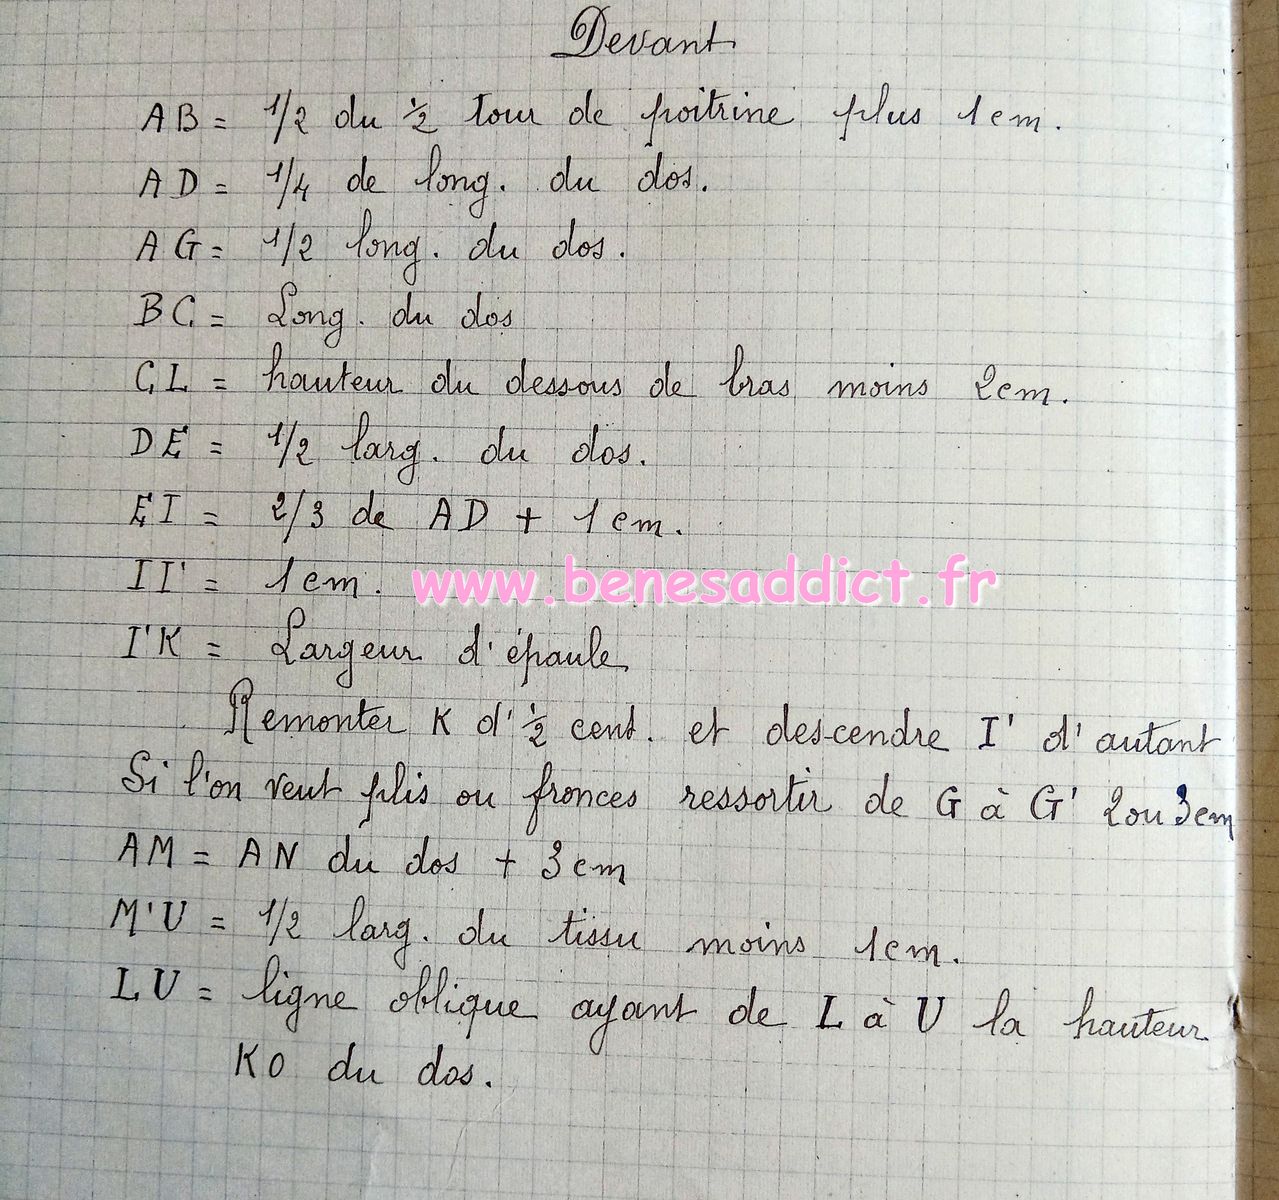 Devant
AB = 1/2 du 1/2 tour de poitrine plus 1 cm.
AD = 1/4 de long. du dos.
AG = 1/2 long. du dos.
BC = Long. du dos
CL = hauteur du dessous de bras moins 2 cm.
DE = 1/2 larg. du dos.
EI = 2/3 de AD + 1 cm.
II' = 1 cm.
www.benesaddict.fr
I'K = Largeur d'épaule
Remonter K d'1/2 cent. et descendre I' d'autant
Si l'on veut plis ou fronces ressortir de G à G' 2 ou 3 cm
AM = AN du dos + 3 cm
M'U = 1/2 larg. du tissu moins 1 cm.
LU = ligne oblique ayant de L à U la hauteur
KO du dos.